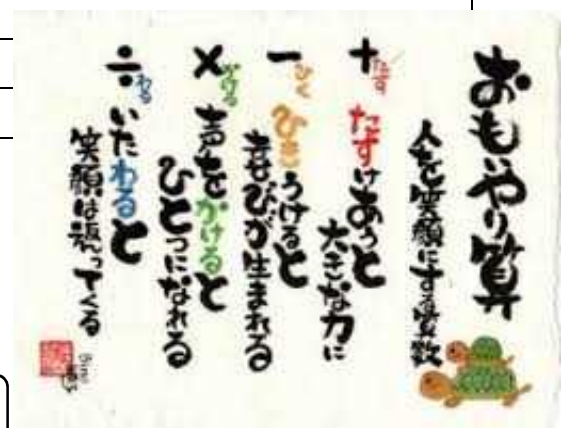 おもいやり算
人を笑顔にする算数
+たす
たすけあうと
大きな力に
-ひく
ひきうけると
喜びが生まれる
×かける
声をかけると
ひとつになれる
÷わる
いたわると
笑顔は返ってくる